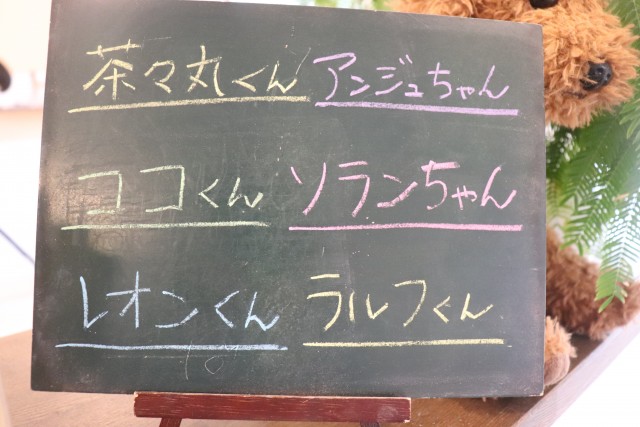 茶々丸くん アンジュちゃん
ココくん ソランちゃん
レオンくん ラルフくん